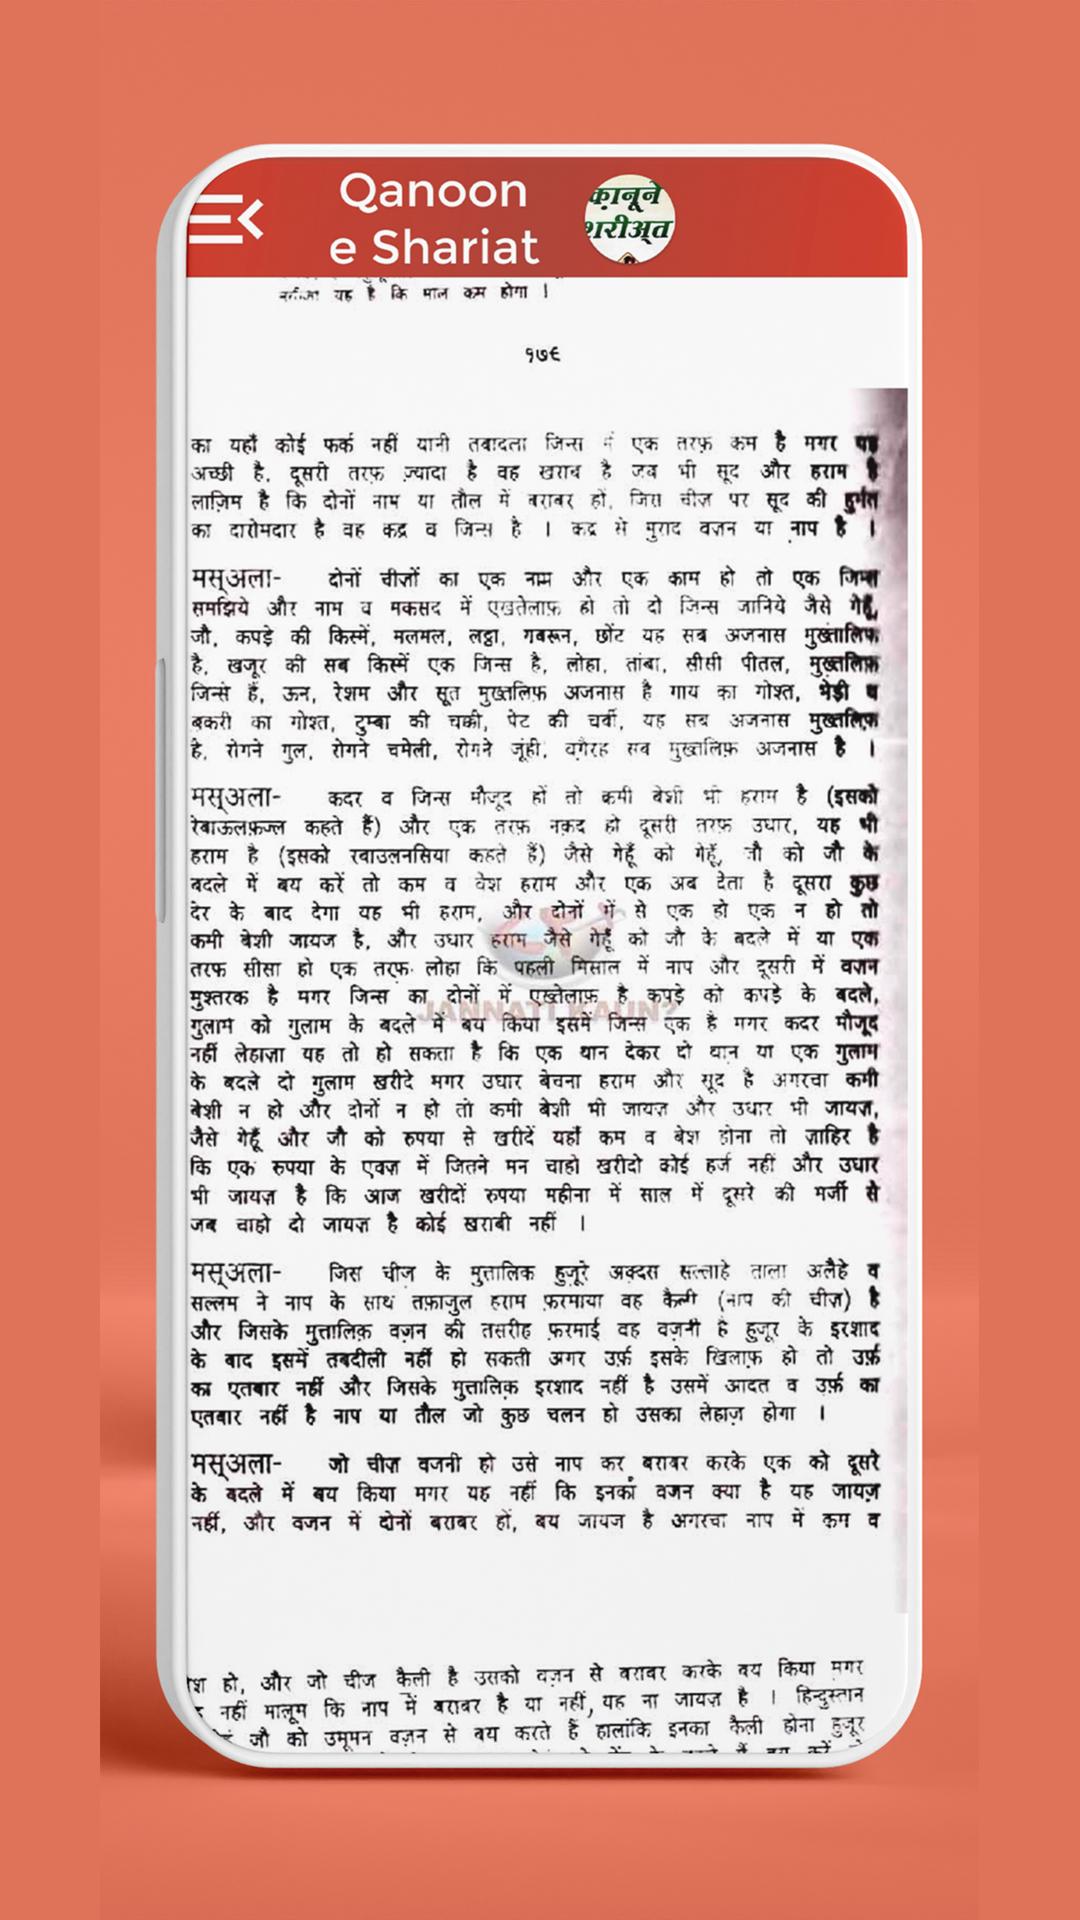 Qanoon
e Shariat
क़ानूने
शरीअ़त
यह है कि माल कम होगा ।
१७६
का यहाँ कोई फर्क नहीं यानी तबादला जिन्स में एक तरफ़ कम है मगर यह
अच्छी है, दूसरी तरफ़ ज़्यादा है वह खराब है जब भी सूद और हराम है
लाज़िम है कि दोनों नाम या तौल में बराबर हों, जिस चीज़ पर सूद की हुर्मत
का दारोमदार है वह कद्र व जिन्स है । कद्र से मुराद वज़न या नाप है ।
मस्अला- दोनों चीज़ों का एक नाम और एक काम हो तो एक जिन्स
समझिये और नाम व मकसद में एख़तेलाफ़ हो तो दो जिन्स जानिये जैसे गेहूँ,
जौ, कपड़े की किस्में, मलमल, लट्ठा, गबरून, छींट यह सब अजनास मुख़्तालिफ़
है, खजूर की सब किस्में एक जिन्स है, लोहा, तांबा, सीसी पीतल, मुख़्तलिफ़
जिन्से हैं, ऊन, रेशम और सूत मुख़्तलिफ़ अजनास है गाय का गोश्त, भेड़ी व
बकरी का गोश्त, दुम्बा की चक्की, पेट की चर्बी, यह सब अजनास मुख़्तलिफ़
है, रोगने गुल, रोगने चमेली, रोगने जूही, वग़ैरह सब मुख़्तलिफ़ अजनास है ।
मस्अला- कदर व जिन्स मौजूद हों तो कमी बेशी भी हराम है (इसको
रेबाऊलफ़ज्ल कहते हैं) और एक तरफ़ नक़द हो दूसरी तरफ़ उधार, यह भी
हराम है (इसको रबाउलनसिया कहते हैं) जैसे गेहूँ को गेहूँ, जौ को जौ के
बदले में बय करें तो कम व वेश हराम और एक अब देता है दूसरा कुछ
देर के बाद देगा यह भी हराम, और दोनों में से एक हो एक न हो तो
कमी बेशी जायज है, और उधार हराम जैसे गेहूँ को जौ के बदले में या एक
तरफ सीसा हो एक तरफ़ लोहा कि पहली मिसाल में नाप और दूसरी में वज़न
मुश्तरक है मगर जिन्स का दोनों में एख़्तेलाफ़ है कपड़े को कपड़े के बदले,
JANNATI KAUN?
गुलाम को गुलाम के बदले में बय किया इसमें जिन्स एक है मगर कदर मौजूद
नहीं लेहाज़ा यह तो हो सकता है कि एक थान देकर दो थान या एक गुलाम
के बदले दो गुलाम खरीदे मगर उधार बेचना हराम और सूद है अगरचा कमी
बेशी न हो और दोनों न हो तो कमी बेशी भी जायज़ और उधार भी जायज़,
जैसे गेहूँ और जौ को रुपया से खरीदें यहाँ कम व बेश होना तो ज़ाहिर है
कि एक रुपया के एवज़ में जितने मन चाहो खरीदो कोई हर्ज नहीं और उधार
भी जायज़ है कि आज खरीदों रुपया महीना में साल में दूसरे की मर्जी से
जब चाहो दो जायज़ है कोई खराबी नहीं ।
मस्अला- जिस चीज़ के मुत्तालिक हुज़ूरे अक़्दस सल्लाहे ताला अलैहे व
सल्लम ने नाप के साथ तफ़ाजुल हराम फ़रमाया वह कैली (नाप की चीज़) है
और जिसके मुत्तालिक़ वज़न की तसरीह फ़रमाई वह वज़नी है हुजूर के इरशाद
के बाद इसमें तबदीली नहीं हो सकती अगर उर्फ़ इसके ख़िलाफ़ हो तो उर्फ़
का एतबार नहीं और जिसके मुत्तालिक़ इरशाद नहीं है उसमें आदत व उर्फ़ का
एतबार नहीं है नाप या तौल जो कुछ चलन हो उसका लेहाज़ होगा ।
मस्अला- जो चीज़ वजनी हो उसे नाप कर बराबर करके एक को दूसरे
के बदले में बय किया मगर यह नहीं कि इनका वजन क्या है यह जायज़
नहीं, और वजन में दोनों बराबर हों, बय जायज है अगरचा नाप में कम व
हो, और जो चीज कैली है उसको वज़न से बराबर करके बय किया मगर
नहीं मालूम कि नाप में बराबर है या नहीं, यह ना जायज़ है । हिन्दुस्तान
जौ को उमूमन वज़न से बय करते हैं हालांकि इनका कैली होना हुजूर